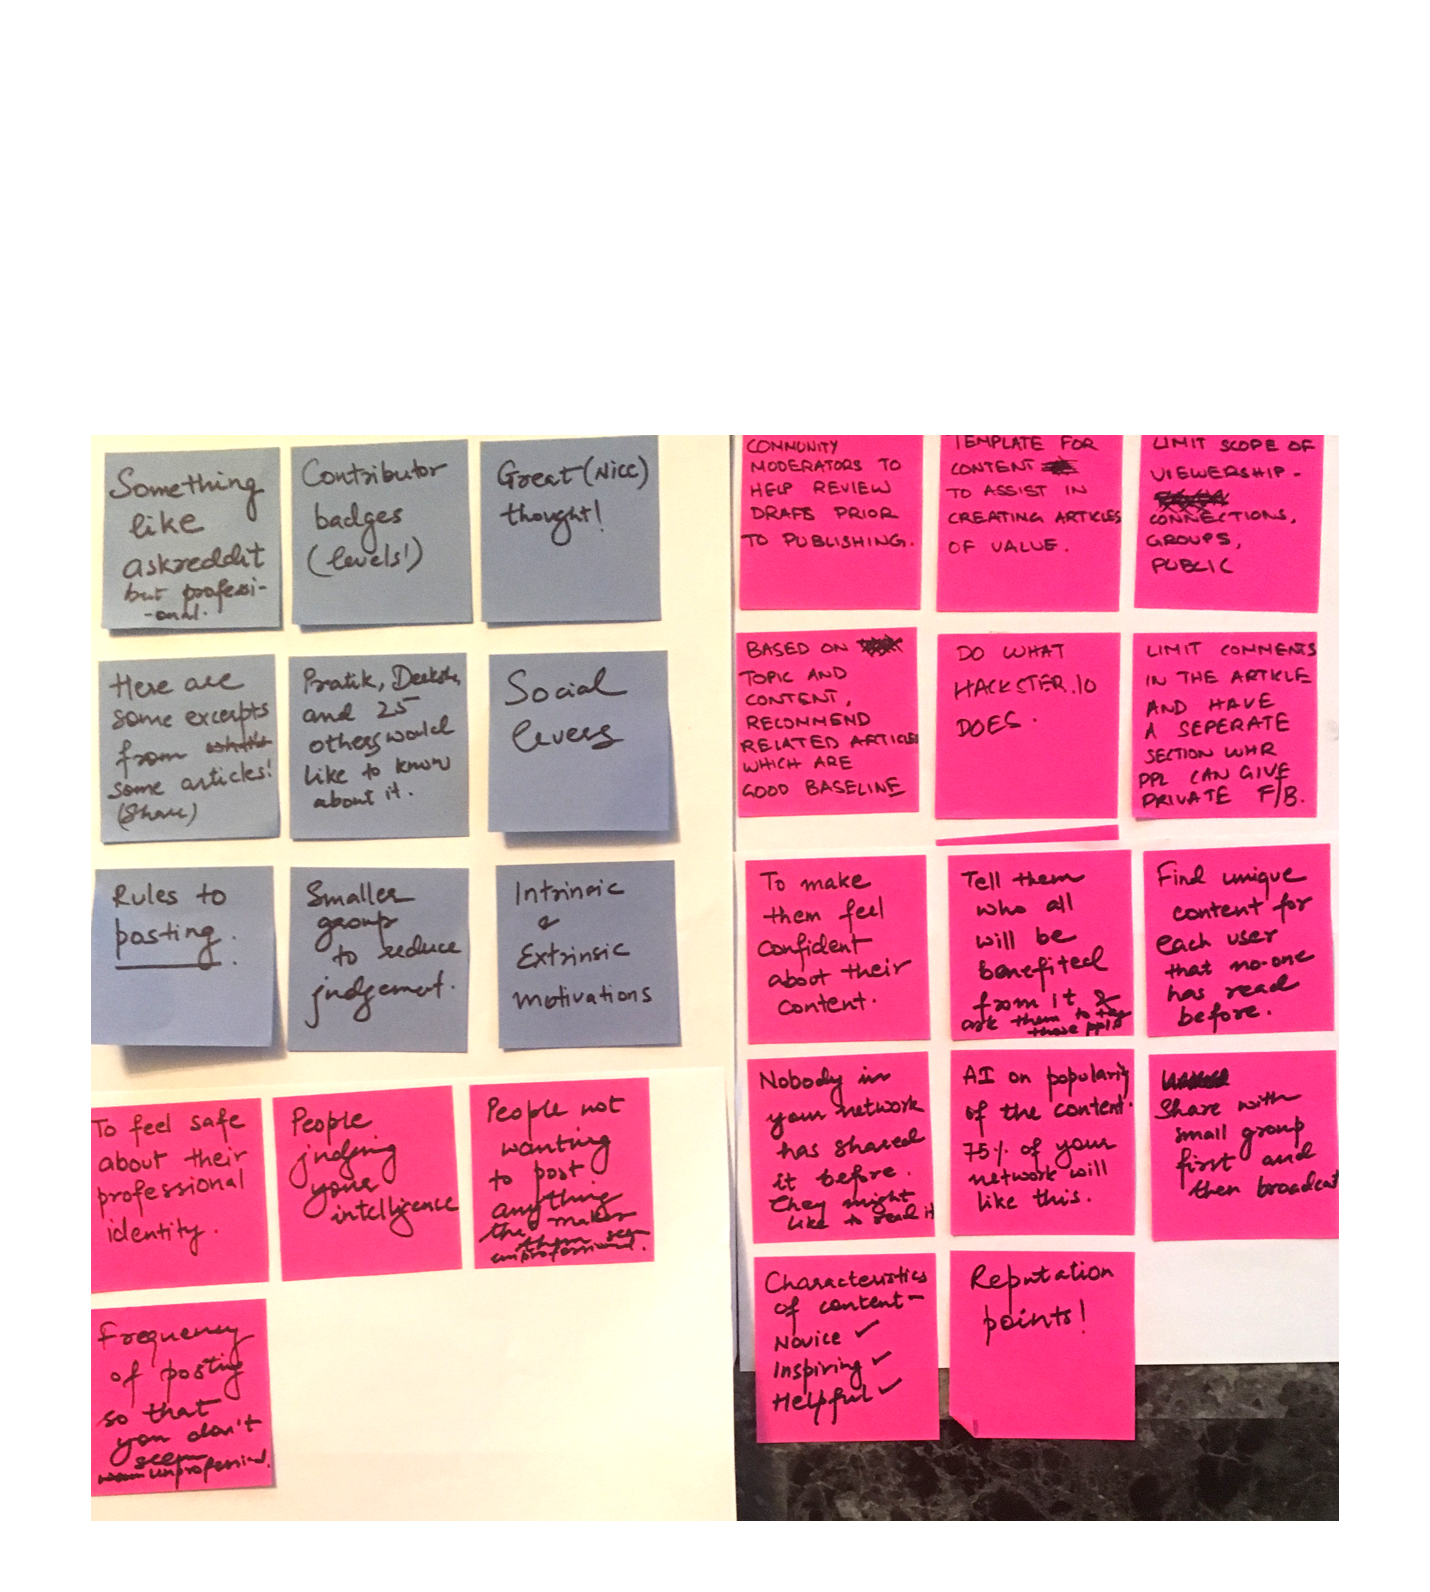 Something
like
askreddit
but professi-
-onal.
Contributor
badges
(levels!)
Great (Nice)
thought!
Here are
some excerpts
from
some articles!
(Share)
Pratik, Deeksha,
and 25
others would
like to know
about it.
Social
levers
Rules to
posting.
Smaller
group
to reduce
judgement.
Intrinsic
&
Extrinsic
motivations
To feel safe
about their
professional
identity.
People
judging
your
intelligence
People not
wanting
to post
anything
that makes
them seem
unprofessional.
Frequency
of posting
so that
you don't
seem
unprofessional.
COMMUNITY
MODERATORS TO
HELP REVIEW
DRAFS PRIOR
TO PUBLISHING.
TEMPLATE FOR
CONTENT
TO ASSIST IN
CREATING ARTICLES
OF VALUE.
LIMIT SCOPE OF
VIEWERSHIP -
CONNECTIONS,
GROUPS,
PUBLIC
BASED ON
TOPIC AND
CONTENT,
RECOMMEND
RELATED ARTICLES
WHICH ARE
GOOD BASELINE
DO WHAT
HACKSTER.IO
DOES.
LIMIT COMMENTS
IN THE ARTICLE
AND HAVE
A SEPERATE
SECTION WHR
PPL CAN GIVE
PRIVATE F/B.
To make
them feel
confident
about their
content.
Tell them
who all
will be
benefited
from it &
ask them to tag
those ppl.
Find unique
content for
each user
that no-one
has read
before.
Nobody in
your network
has shared
it before.
They might
like to read it
AI on popularity
of the content.
75% of your
network will
like this.
Share with
small group
first and
then broadcast
Characteristics
of content -
Novice ✓
Inspiring ✓
Helpful ✓
Reputation
points!